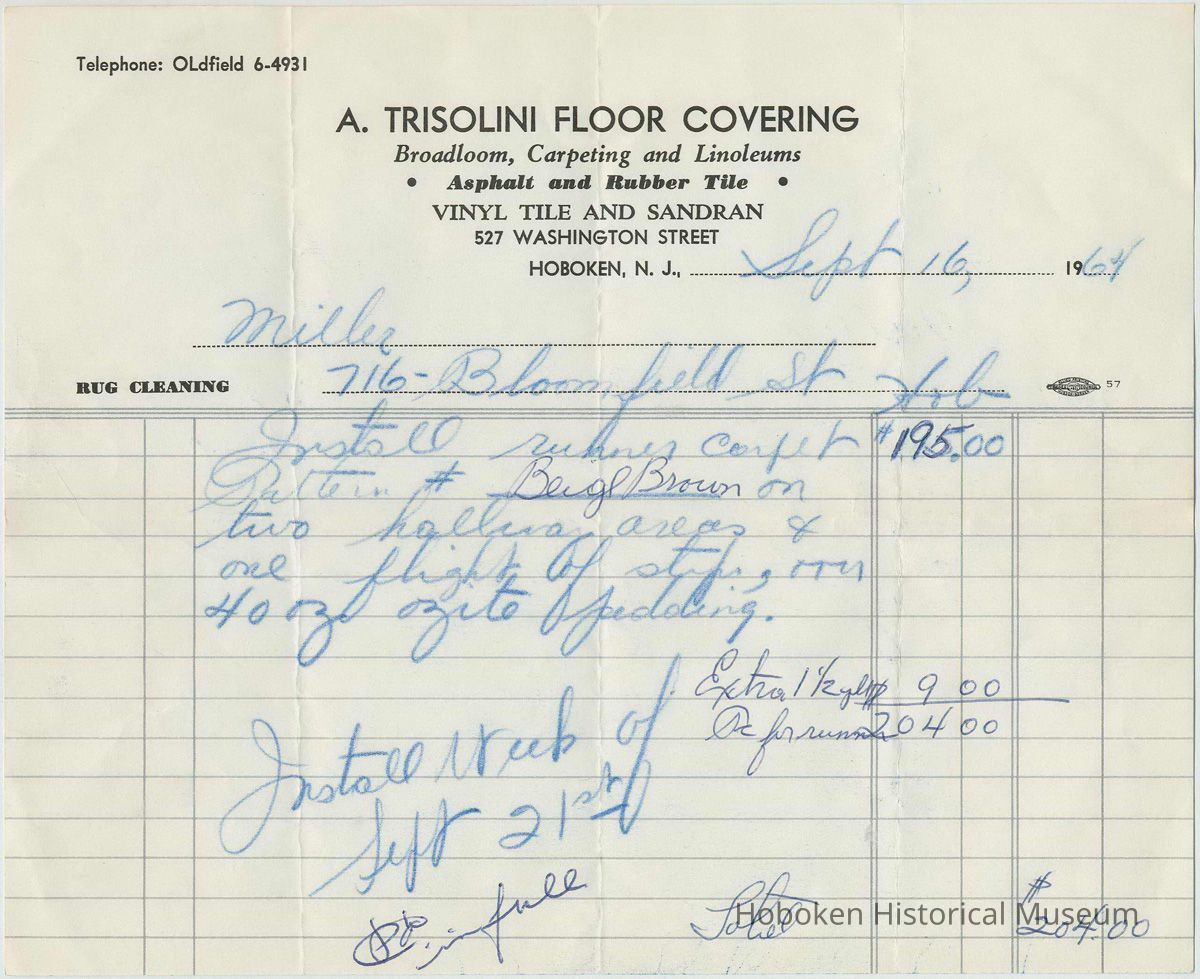 Telephone: OLdfield 6-4931
A. TRISOLINI FLOOR COVERING
Broadloom, Carpeting and Linoleums
• Asphalt and Rubber Tile •
VINYL TILE AND SANDRAN
527 WASHINGTON STREET
HOBOKEN, N. J., Sept 16, 1964
Miller
RUG CLEANING 716- Bloomfield St Hob 57
Install runner carpet $195.00
Pattern # Beige Brown on
two hallway areas &
one flight of steps, over
40 oz ozite padding.
Extra 1 1/2 yds $ 9 00
for runner 204 00
Install Week of
Sept 21st
Pd in full
Total $204.00
Hoboken Historical Museum